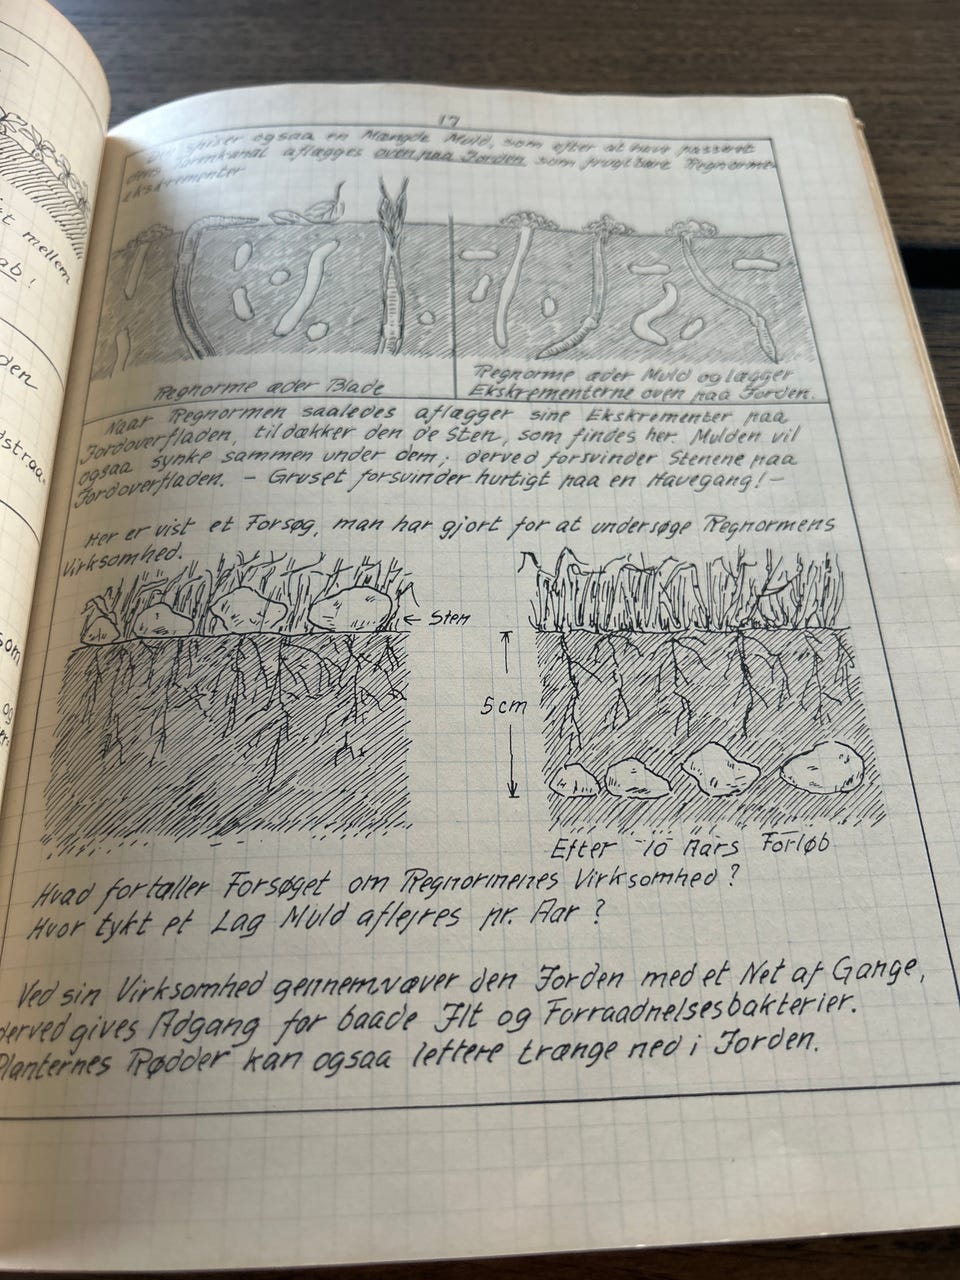 mellem
ab!
den
som
og
17
spiser ogsaa en Mængde Muld, som efter at have passeret
dens Tarmkanal aflægges oven paa Jorden som frugtbare Regnorme-
ekskrementer
Regnorme æder Blade
Regnorme æder Muld og lægger
Ekskrementerne oven paa Jorden.
Naar Regnormen saaledes aflægger sine Ekskrementer paa
Jordoverfladen, tildækker den de Sten, som findes her. Mulden vil
ogsaa synke sammen under dem; derved forsvinder Stenene paa
Jordoverfladen. - Gruset forsvinder hurtigt paa en Havegang! -
Her er vist et Forsøg, man har gjort for at undersøge Regnormens
Virksomhed.
← Sten
5 cm
Efter 10 Aars Forløb
Hvad fortæller Forsøget om Regnormenes Virksomhed?
Hvor tykt et Lag Muld aflejres pr. Aar?
Ved sin Virksomhed gennemvæver den Jorden med et Net af Gange,
derved gives Adgang for baade Ilt og Forraadnelsesbakterier.
Planternes Rødder kan ogsaa lettere trænge ned i Jorden.